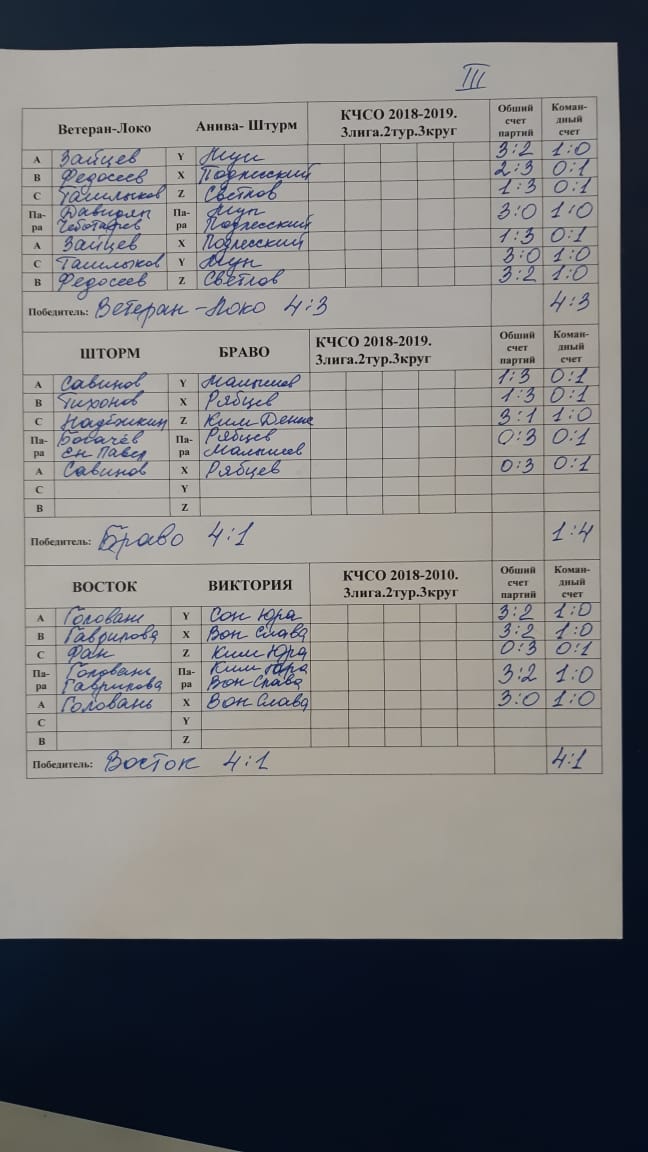 III
Ветеран-Локо Анива- Штурм КЧСО 2018-2019. 3лига.2тур.3круг Обший счет партий Коман-дный счет
A Зайцев Y 3:2 1:0
B Федосеев X Подлесский 2:3 0:1
C Ташлыков Z Светлов 1:3 0:1
Па-ра Давидян Чеботарев Па-ра Подлесский 3:0 1:0
A Зайцев X Подлесский 1:3 0:1
C Ташлыков Y 3:0 1:0
B Федосеев Z Светлов 3:2 1:0
Победитель: Ветеран-Локо 4:3 4:3
ШТОРМ БРАВО КЧСО 2018-2019. 3лига.2тур.3круг Обший счет партий Коман-дный счет
A Савинов Y Малышев 1:3 0:1
B Тихонов X Рябцев 1:3 0:1
C Надёжкин Z Ким Денис 3:1 1:0
Па-ра Богачёв Ен Павел Па-ра Рябцев Малышев 0:3 0:1
A Савинов X Рябцев 0:3 0:1
C Y
B Z
Победитель: Браво 4:1 1:4
ВОСТОК ВИКТОРИЯ КЧСО 2018-2010. 3лига.2тур.3круг Обший счет партий Коман-дный счет
A Головань Y Сон Юра 3:2 1:0
B Гаврилова X Вон Слава 3:2 1:0
C Фан Z Ким Юра 0:3 0:1
Па-ра Головань Гаврилова Па-ра Ким Юра Вон Слава 3:2 1:0
A Головань X Вон Слава 3:0 1:0
C Y
B Z
Победитель: Восток 4:1 4:1